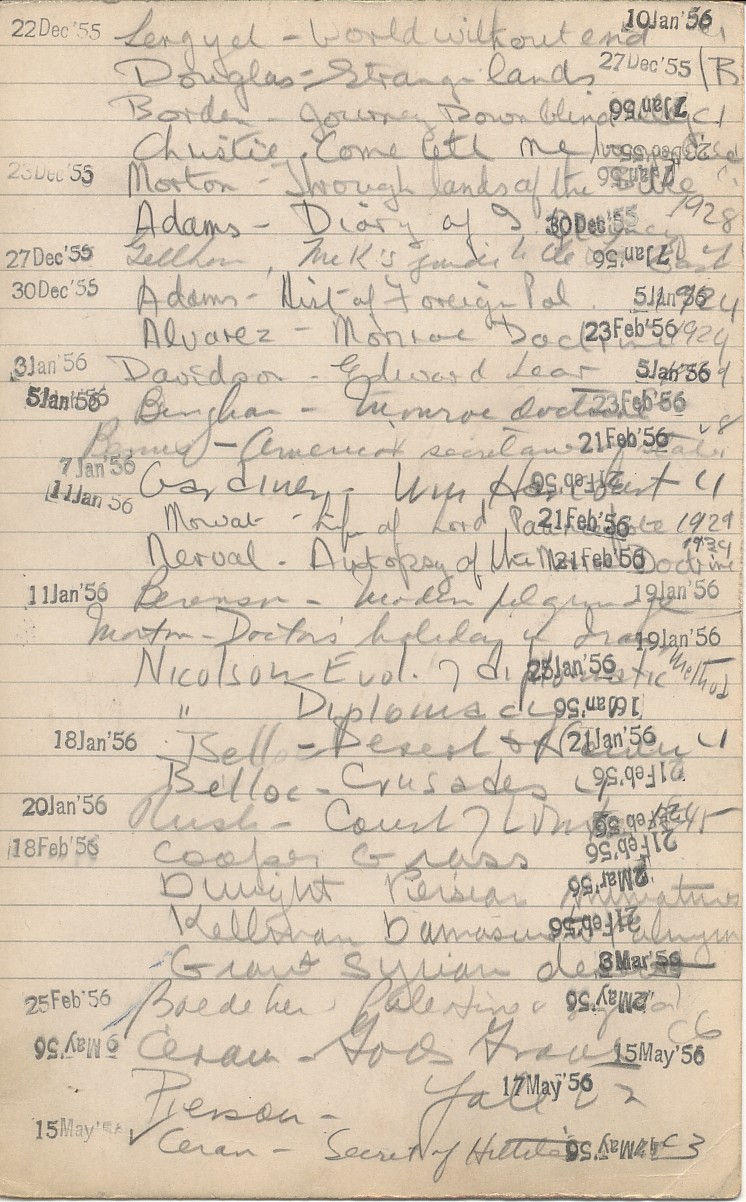 22Dec'55 Lengyel - World without end 10Jan'56
Douglas - Strange lands 27Dec'55 B
Borden - Journey Down blind alley 7Jan'56 C1
Christie Come tell me 23Dec'55
23Dec'55 Morton - Through lands of the Bible 7Jan'56 1928
Adams - Diary of 30Dec'55
27Dec'55 Gellhorn, McK's guide to the East 7Jan'56
30Dec'55 Adams - Hist of Foreign Pol. 5Jan'56 1924
Alvarez - Monroe Doctrine 23Feb'56 1924
3Jan'56 Davidson - Edward Lear 5Jan'56
5Jan'56 Bingham - Monroe doctrine 23Feb'56
Bemis - American secretaries of state 21Feb'56 v8
7Jan'56 Gardiner - Wm Harcourt 21Feb'56 4
11Jan'56 Mowat - Life of Lord Pauncefote 21Feb'56 1929
Nerval - Autopsy of the Monroe Doctrine 21Feb'56 1934
11Jan'56 Berenson - Modern pilgrimage 19Jan'56
Morton - Doctors holiday in Iran 19Jan'56
Nicolson - Evol. of diplomatic Method 25Jan'56
" Diplomacy 16Jan'56
18Jan'56 Bell - Desert & 21Jan'56 4
Belloc - Crusades 21Feb'56
20Jan'56 Rush - Court of London 21Feb'56 1845
18Feb'56 Cooper Grass 21Feb'56
Dwight Persian Miniatures 2Mar'56
Kellman Damascus Palmyra 21Feb'56
Grant Syrian desert 3Mar'56
25Feb'56 Baedeker Palestine & Syria 2May'56
9May'56 Ceram - Gods Graves 15May'56 C6
Pierson - Yale 17May'56 22
15May'56 ✓ Ceram - Secret of Hittites 17May'56 C3